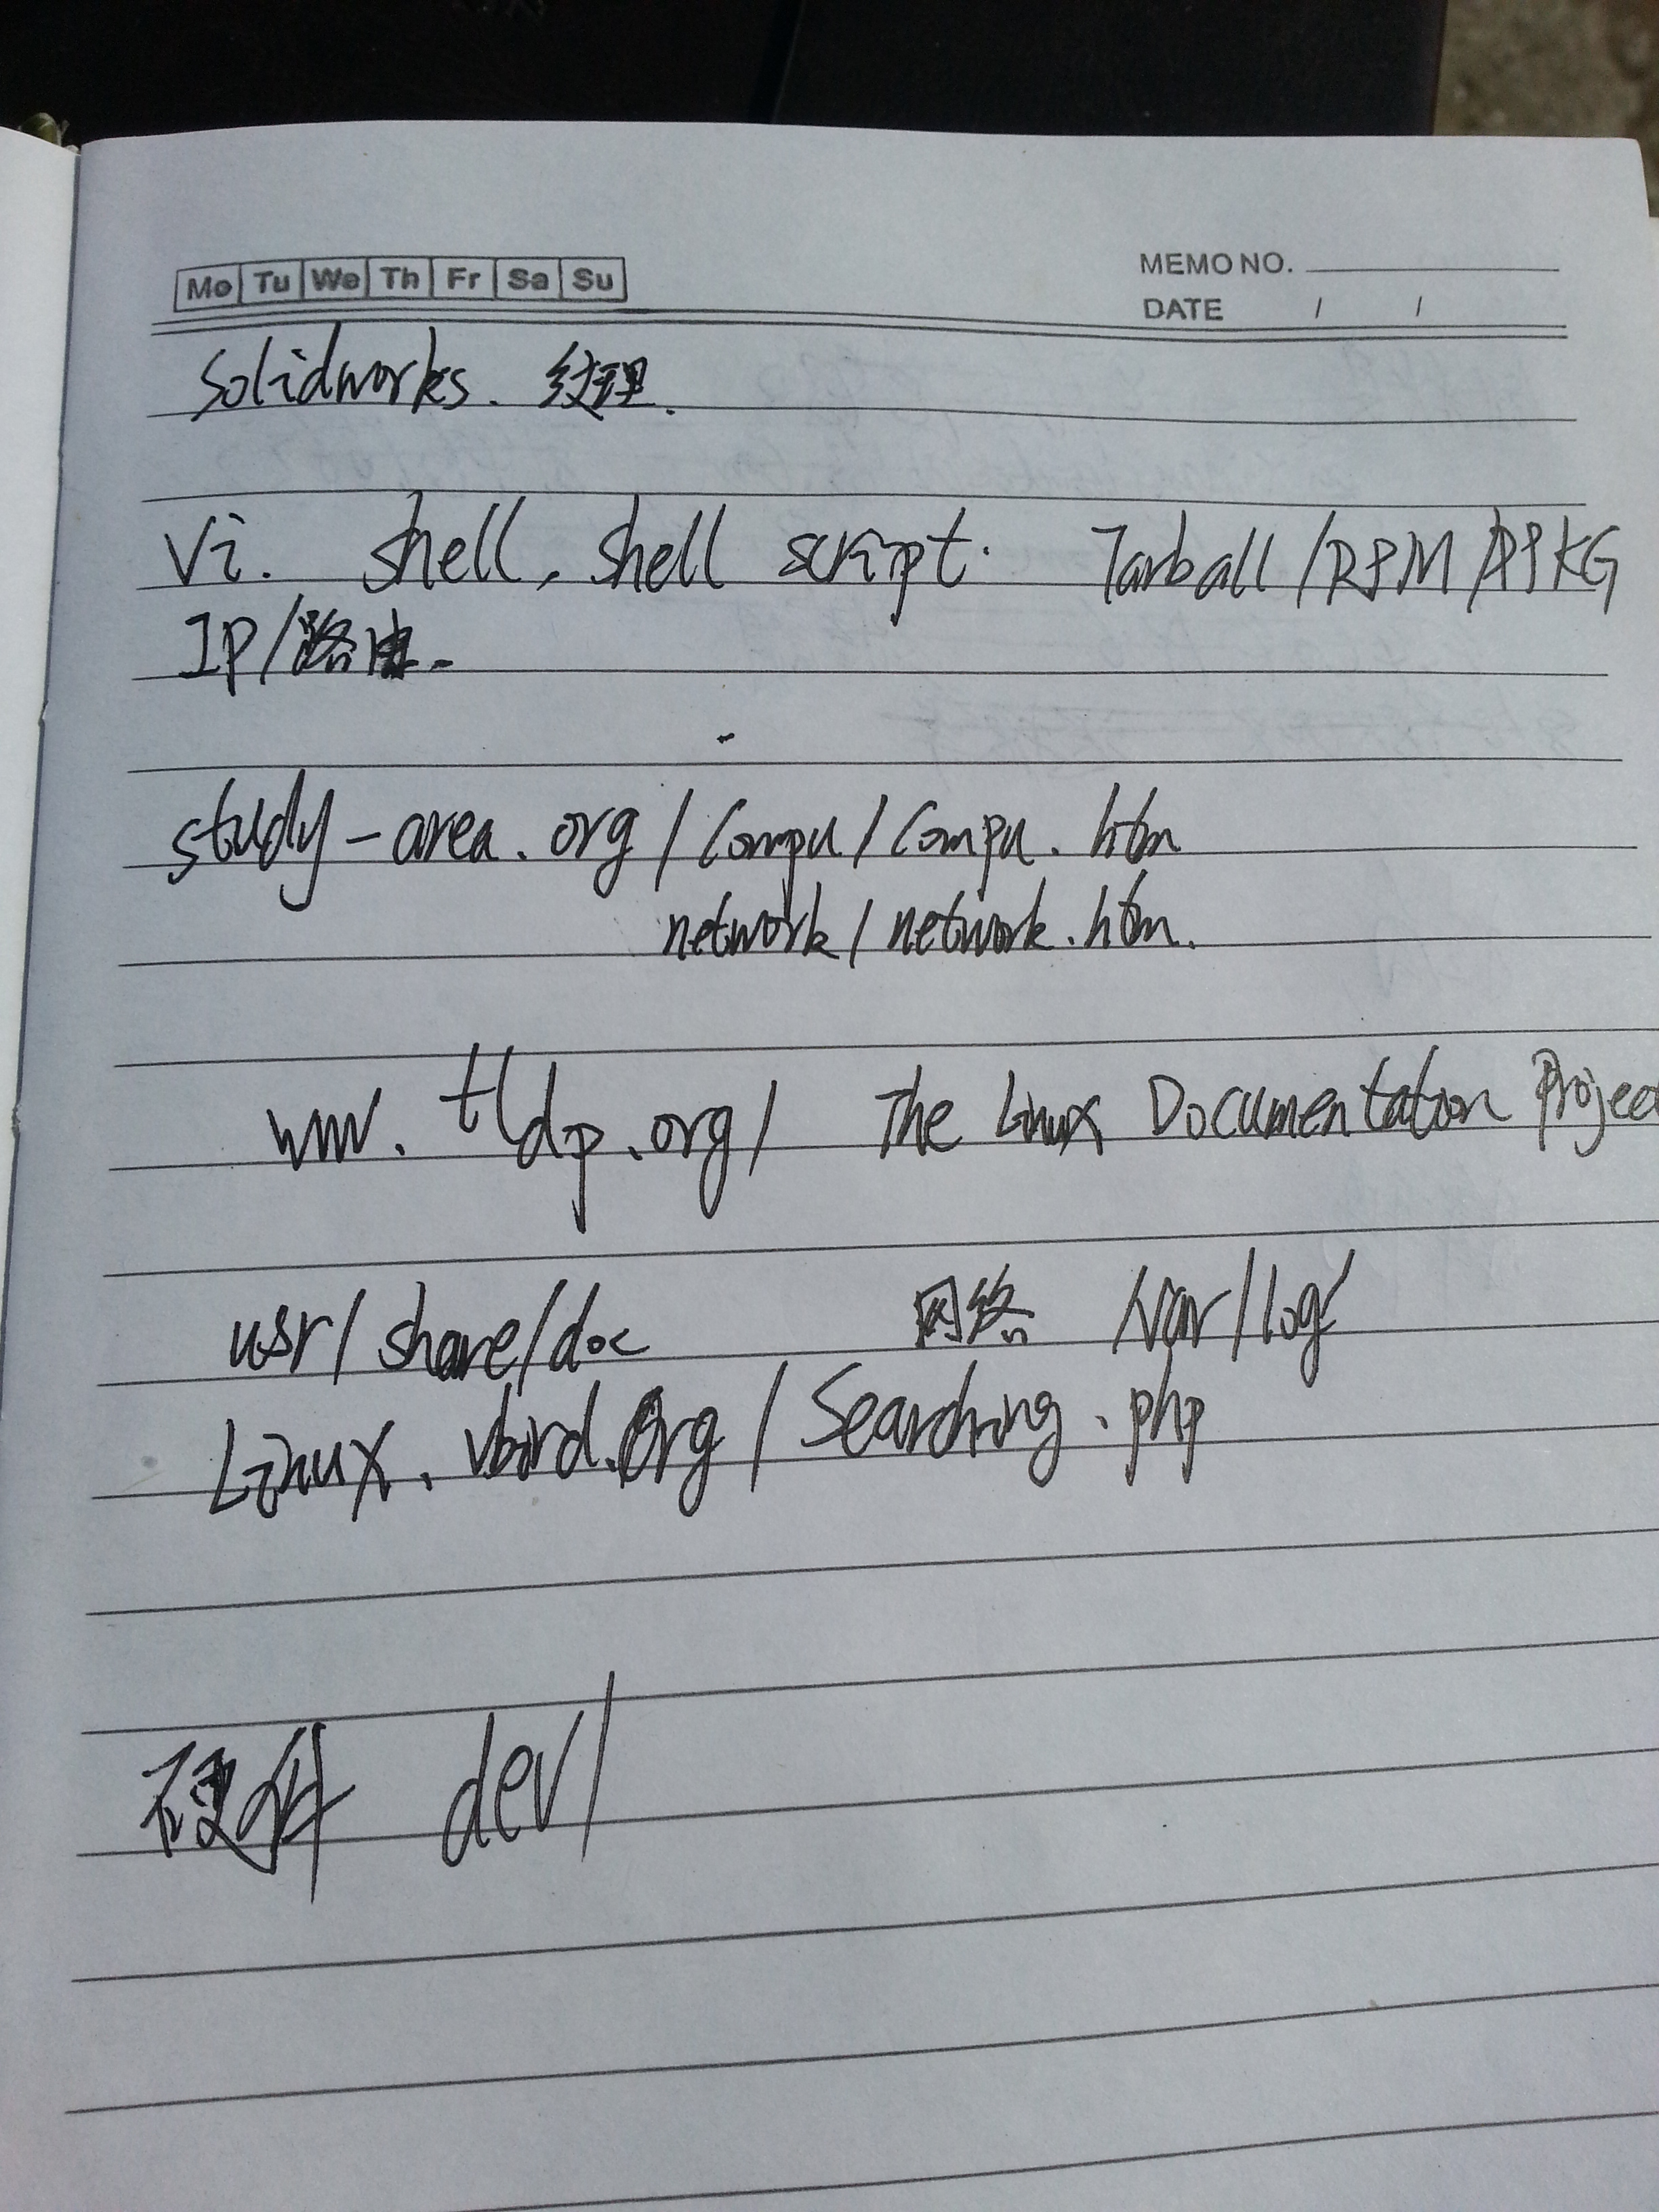 Mo Tu We Th Fr Sa Su
MEMO NO.
DATE / /
Solidworks. 纹理.
Vi. shell, shell script. Tarball/RPM/DPKG
IP/路由.
study-area.org/compu/compu.htm
network/network.htm.
www.tldp.org/ The Linux Documentation Project
usr/share/doc 网络 /var/log/
Linux.vbird.org/Searching.php
硬件 dev/